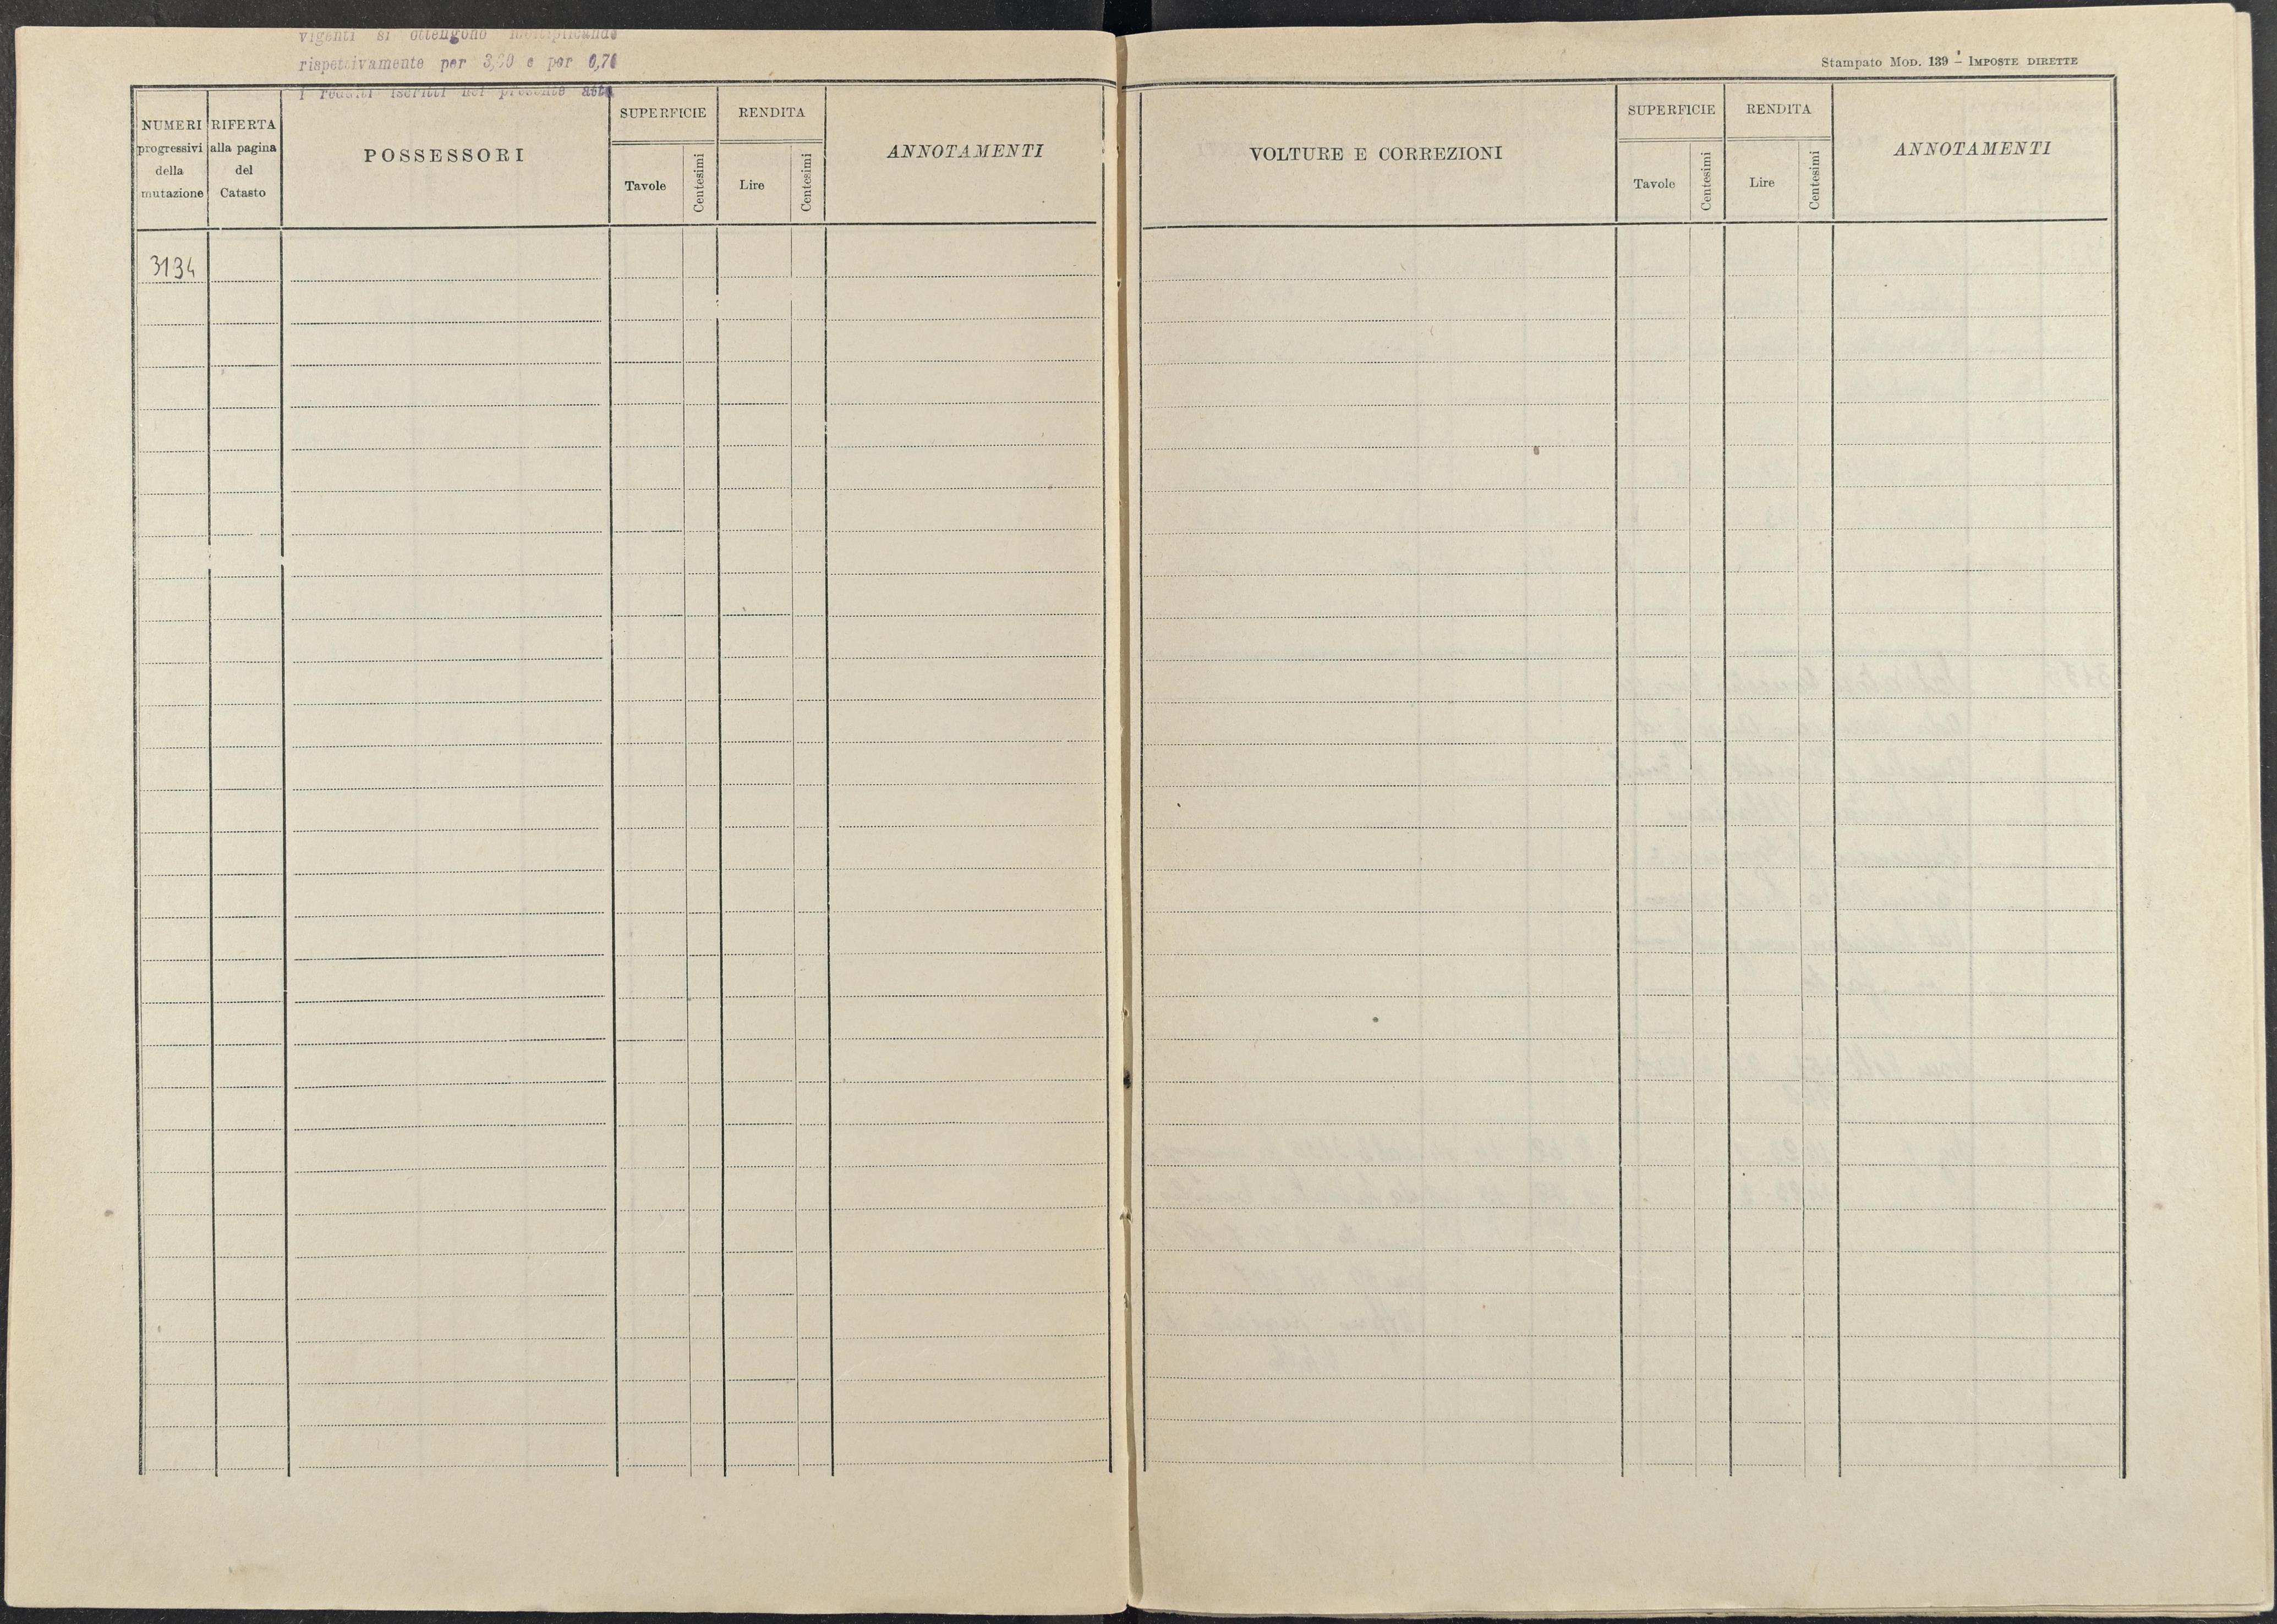 vigenti si ottengono moltiplicando
rispettivamente per 3,60 e per 0,70
I redditi iscritti nel presente atto
Stampato Mod. 139 - Imposte dirette
NUMERI progressivi della mutazione
RIFERTA alla pagina del Catasto
POSSESSORI
SUPERFICIE
Tavole
Centesimi
RENDITA
Lire
Centesimi
ANNOTAMENTI
VOLTURE E CORREZIONI
SUPERFICIE
Tavole
Centesimi
RENDITA
Lire
Centesimi
ANNOTAMENTI
3134